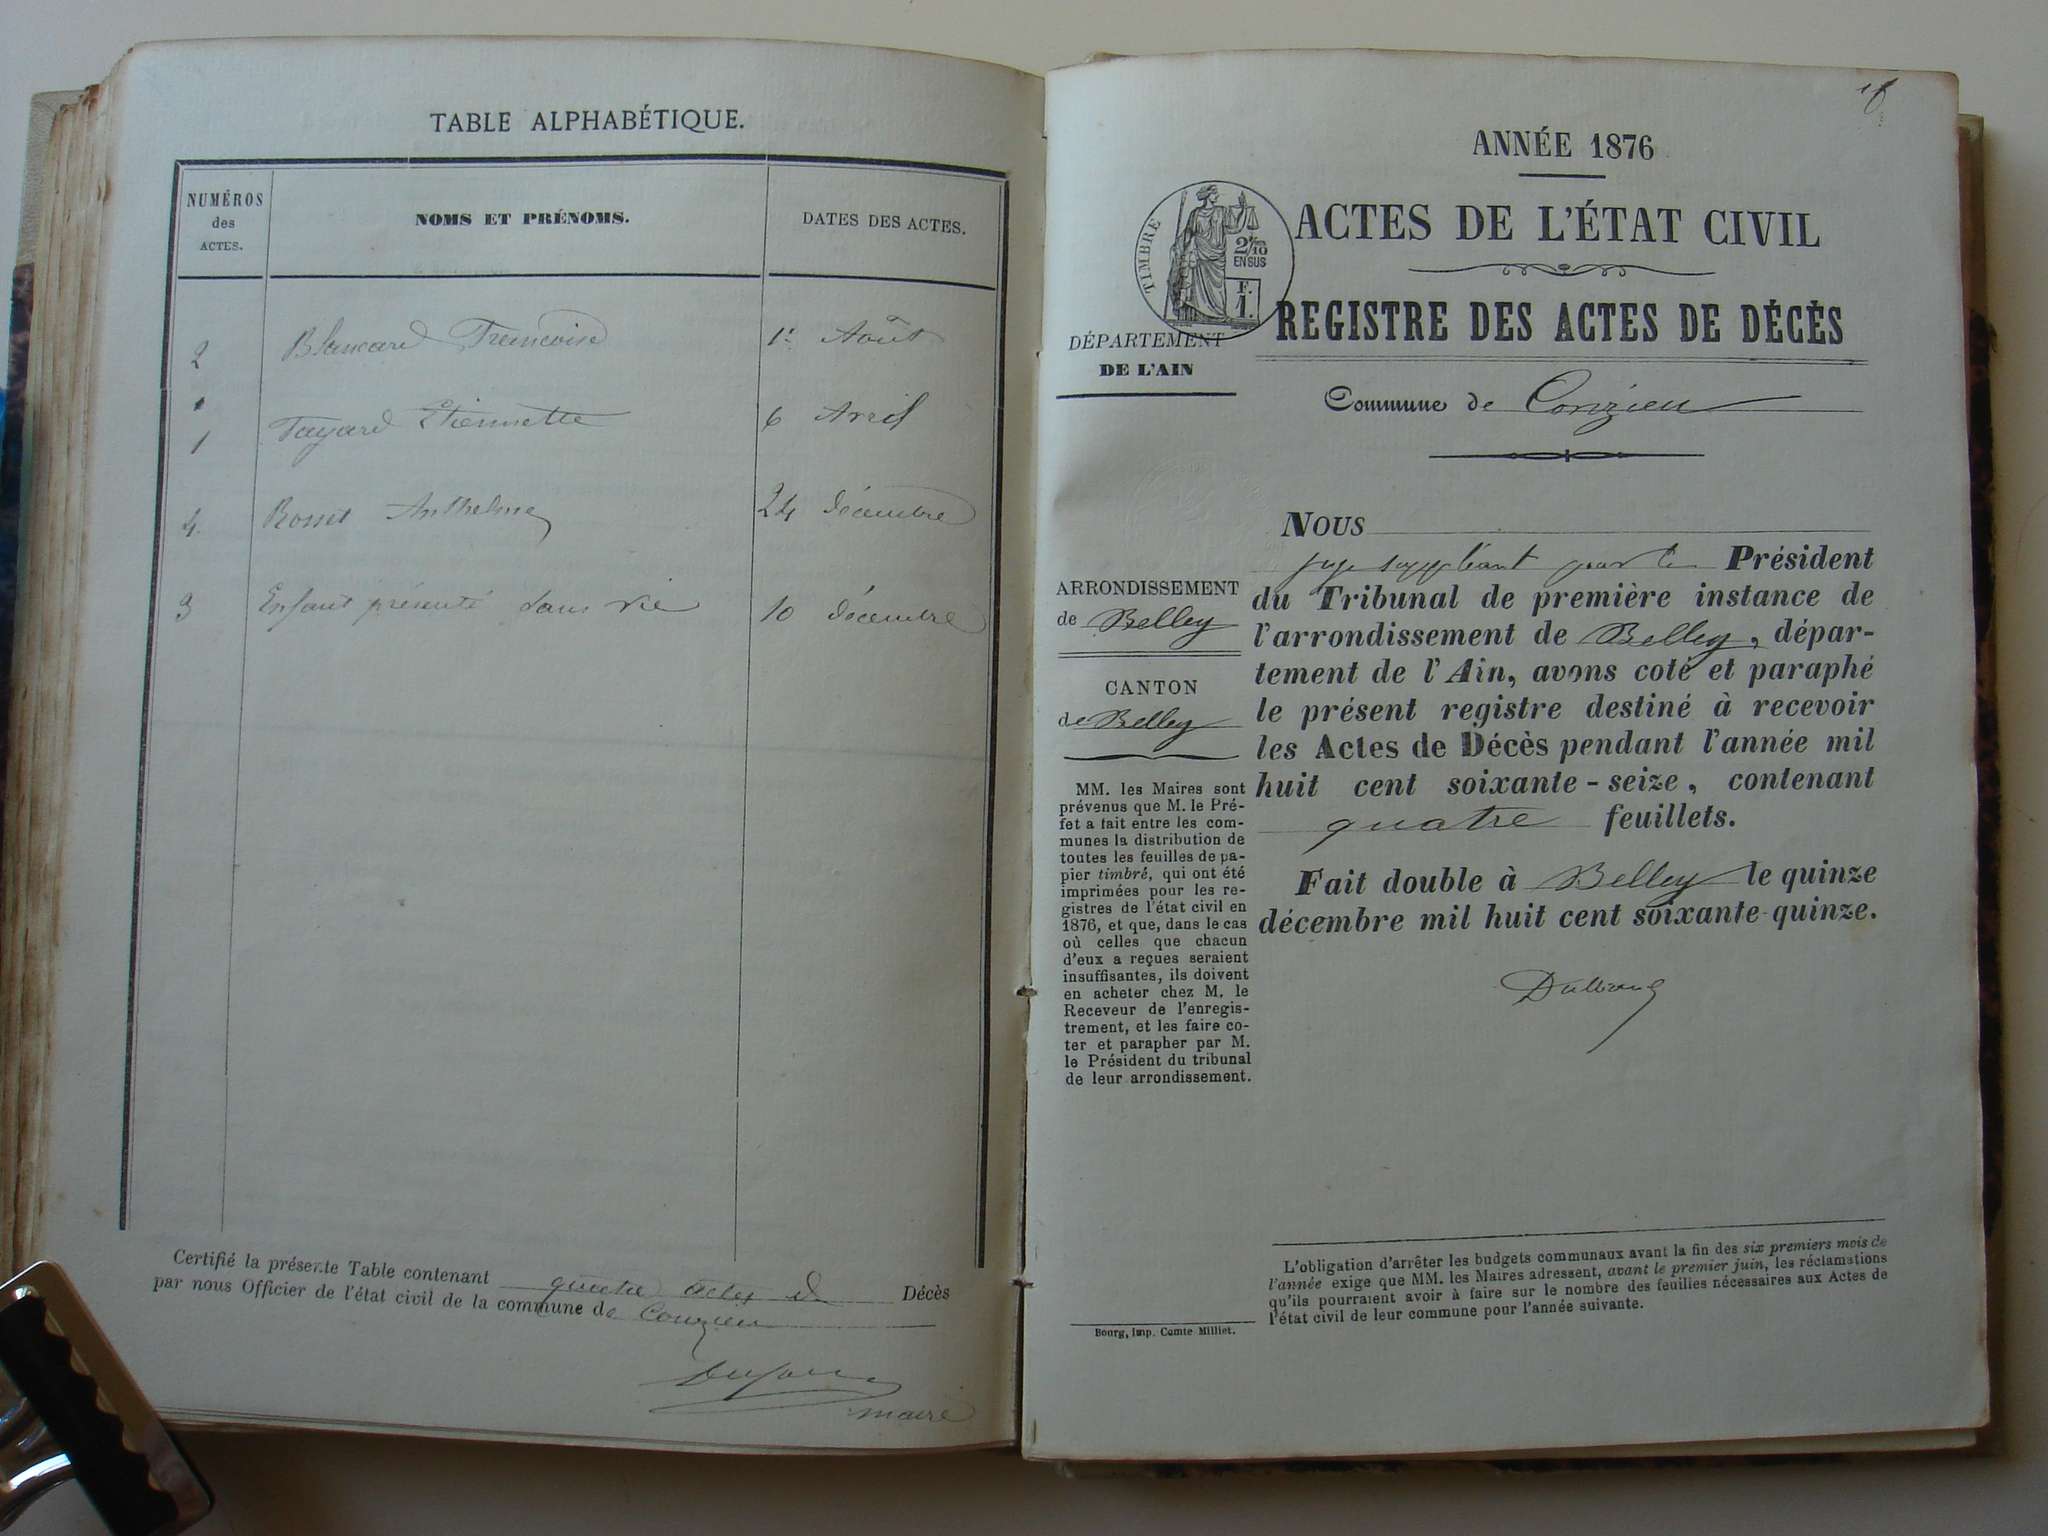 TABLE ALPHABÉTIQUE.
NUMÉROS
des
ACTES.
NOMS ET PRÉNOMS.
DATES DES ACTES.
2 Blancard Francoise 1er Août
1 Fayard Etiennette 6 Avril
4. Rosset Anthelme 24 décembre
3 Enfant présenté sans vie 10 décembre
Certifié la présente Table contenant quatre actes de Décès
par nous Officier de l'état civil de la commune de Conzieu
maire
ANNÉE 1876
TIMBRE
2/10
EN SUS
F.
1.
ACTES DE L'ÉTAT CIVIL
REGISTRE DES ACTES DE DÉCÈS
DÉPARTEMENT
DE L'AIN
Commune de Conzieu
ARRONDISSEMENT
de Belley
CANTON
de Belley
MM. les Maires sont
prévenus que M. le Pré-
fet a fait entre les com-
munes la distribution de
toutes les feuilles de pa-
pier timbré, qui ont été
imprimées pour les re-
gistres de l'état civil en
1876, et que, dans le cas
où celles que chacun
d'eux a reçues seraient
insuffisantes, ils doivent
en acheter chez M. le
Receveur de l'enregis-
trement, et les faire co-
ter et parapher par M.
le Président du tribunal
de leur arrondissement.
NOUS
juge suppléant pour le Président
du Tribunal de première instance de
l'arrondissement de Belley, dépar-
tement de l'Ain, avons coté et paraphé
le présent registre destiné à recevoir
les Actes de Décès pendant l'année mil
huit cent soixante-seize, contenant
quatre feuillets.
Fait double à Belley le quinze
décembre mil huit cent soixante-quinze.
L'obligation d'arrêter les budgets communaux avant la fin des six premiers mois de
l'année exige que MM. les Maires adressent, avant le premier juin, les réclamations
qu'ils pourraient avoir à faire sur le nombre des feuilles nécessaires aux Actes de
l'état civil de leur commune pour l'année suivante.
Bourg, Imp. Comte Milliet.